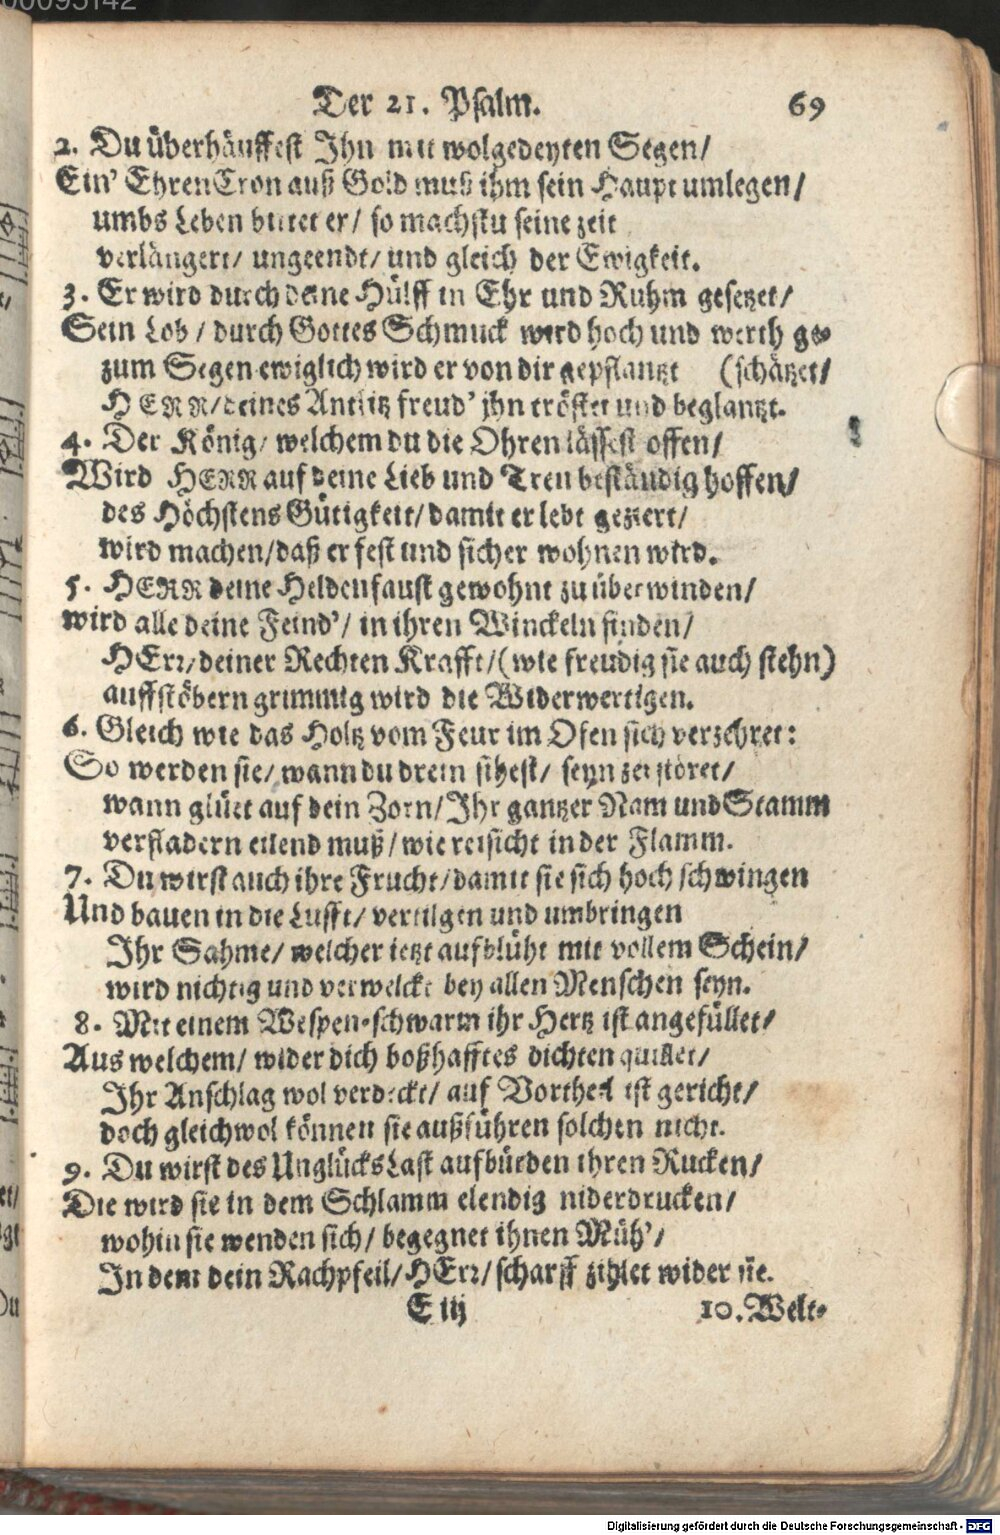 Der 21. Psalm. 69
2. Du überhäuffest Ihn mit wolgedeyten Segen/
Ein' EhrenCron auß Gold muß ihm sein Haupt umlegen/
umbs Leben bittet er/ so machstu seine zeit
verlängert/ ungeendt/ und gleich der Ewigkeit.
3. Er wird durch deine Hülff in Ehr und Ruhm gesetzet/
Sein Lob/ durch Gottes Schmuck wird hoch und werth ge-
zum Segen ewiglich wird er von dir gepflantzt (schätzet/
HERR/ deines Antlitz freud' jhn tröstet und beglantzt.
4. Der König/ welchem du die Ohren lässest offen/
Wird HERR auf deine Lieb und Treu beständig hoffen/
des Höchstens Gütigkeit/ damit er lebt geziert/
wird machen/ daß er fest und sicher wohnen wird.
5. HERR deine Heldenfaust gewohnt zu überwinden/
wird alle deine Feind'/ in ihren Winckeln finden/
HErr/ deiner Rechten Krafft/ (wie freudig sie auch stehn)
auffstöbern grimmig wird die Widerwertigen.
6. Gleich wie das Holtz vom Feur im Ofen sich verzehret:
So werden sie/ wann du drein sihest/ seyn zerstöret/
wann glüet auf dein Zorn/ Ihr gantzer Nam und Stamm
verfladern eilend muß/ wie reisicht in der Flamm.
7. Du wirst auch ihre Frucht/ damit sie sich hoch schwingen
Und bauen in die Lufft/ vertilgen und umbringen
Ihr Sahme/ welcher ietzt aufblüht mit vollem Schein/
wird nichtig und verwelckt bey allen Menschen seyn.
8. Mit einem Wespen-schwarm ihr Hertz ist angefüllet/
Aus welchem/ wider dich boßhafftes dichten quillet/
Ihr Anschlag wol verdeckt/ auf Vortheil ist gericht/
doch gleichwol können sie außführen solchen nicht.
9. Du wirst des Unglücks Last aufbürden ihren Rucken/
Die wird sie in dem Schlamm elendig niderdrucken/
wohin sie wenden sich/ begegnet ihnen Müh'/
In dem dein Rachpfeil/ HErr/ scharff zihlet wider sie.
E iij 10. Welt-
Digitalisierung gefördert durch die Deutsche Forschungsgemeinschaft - DFG